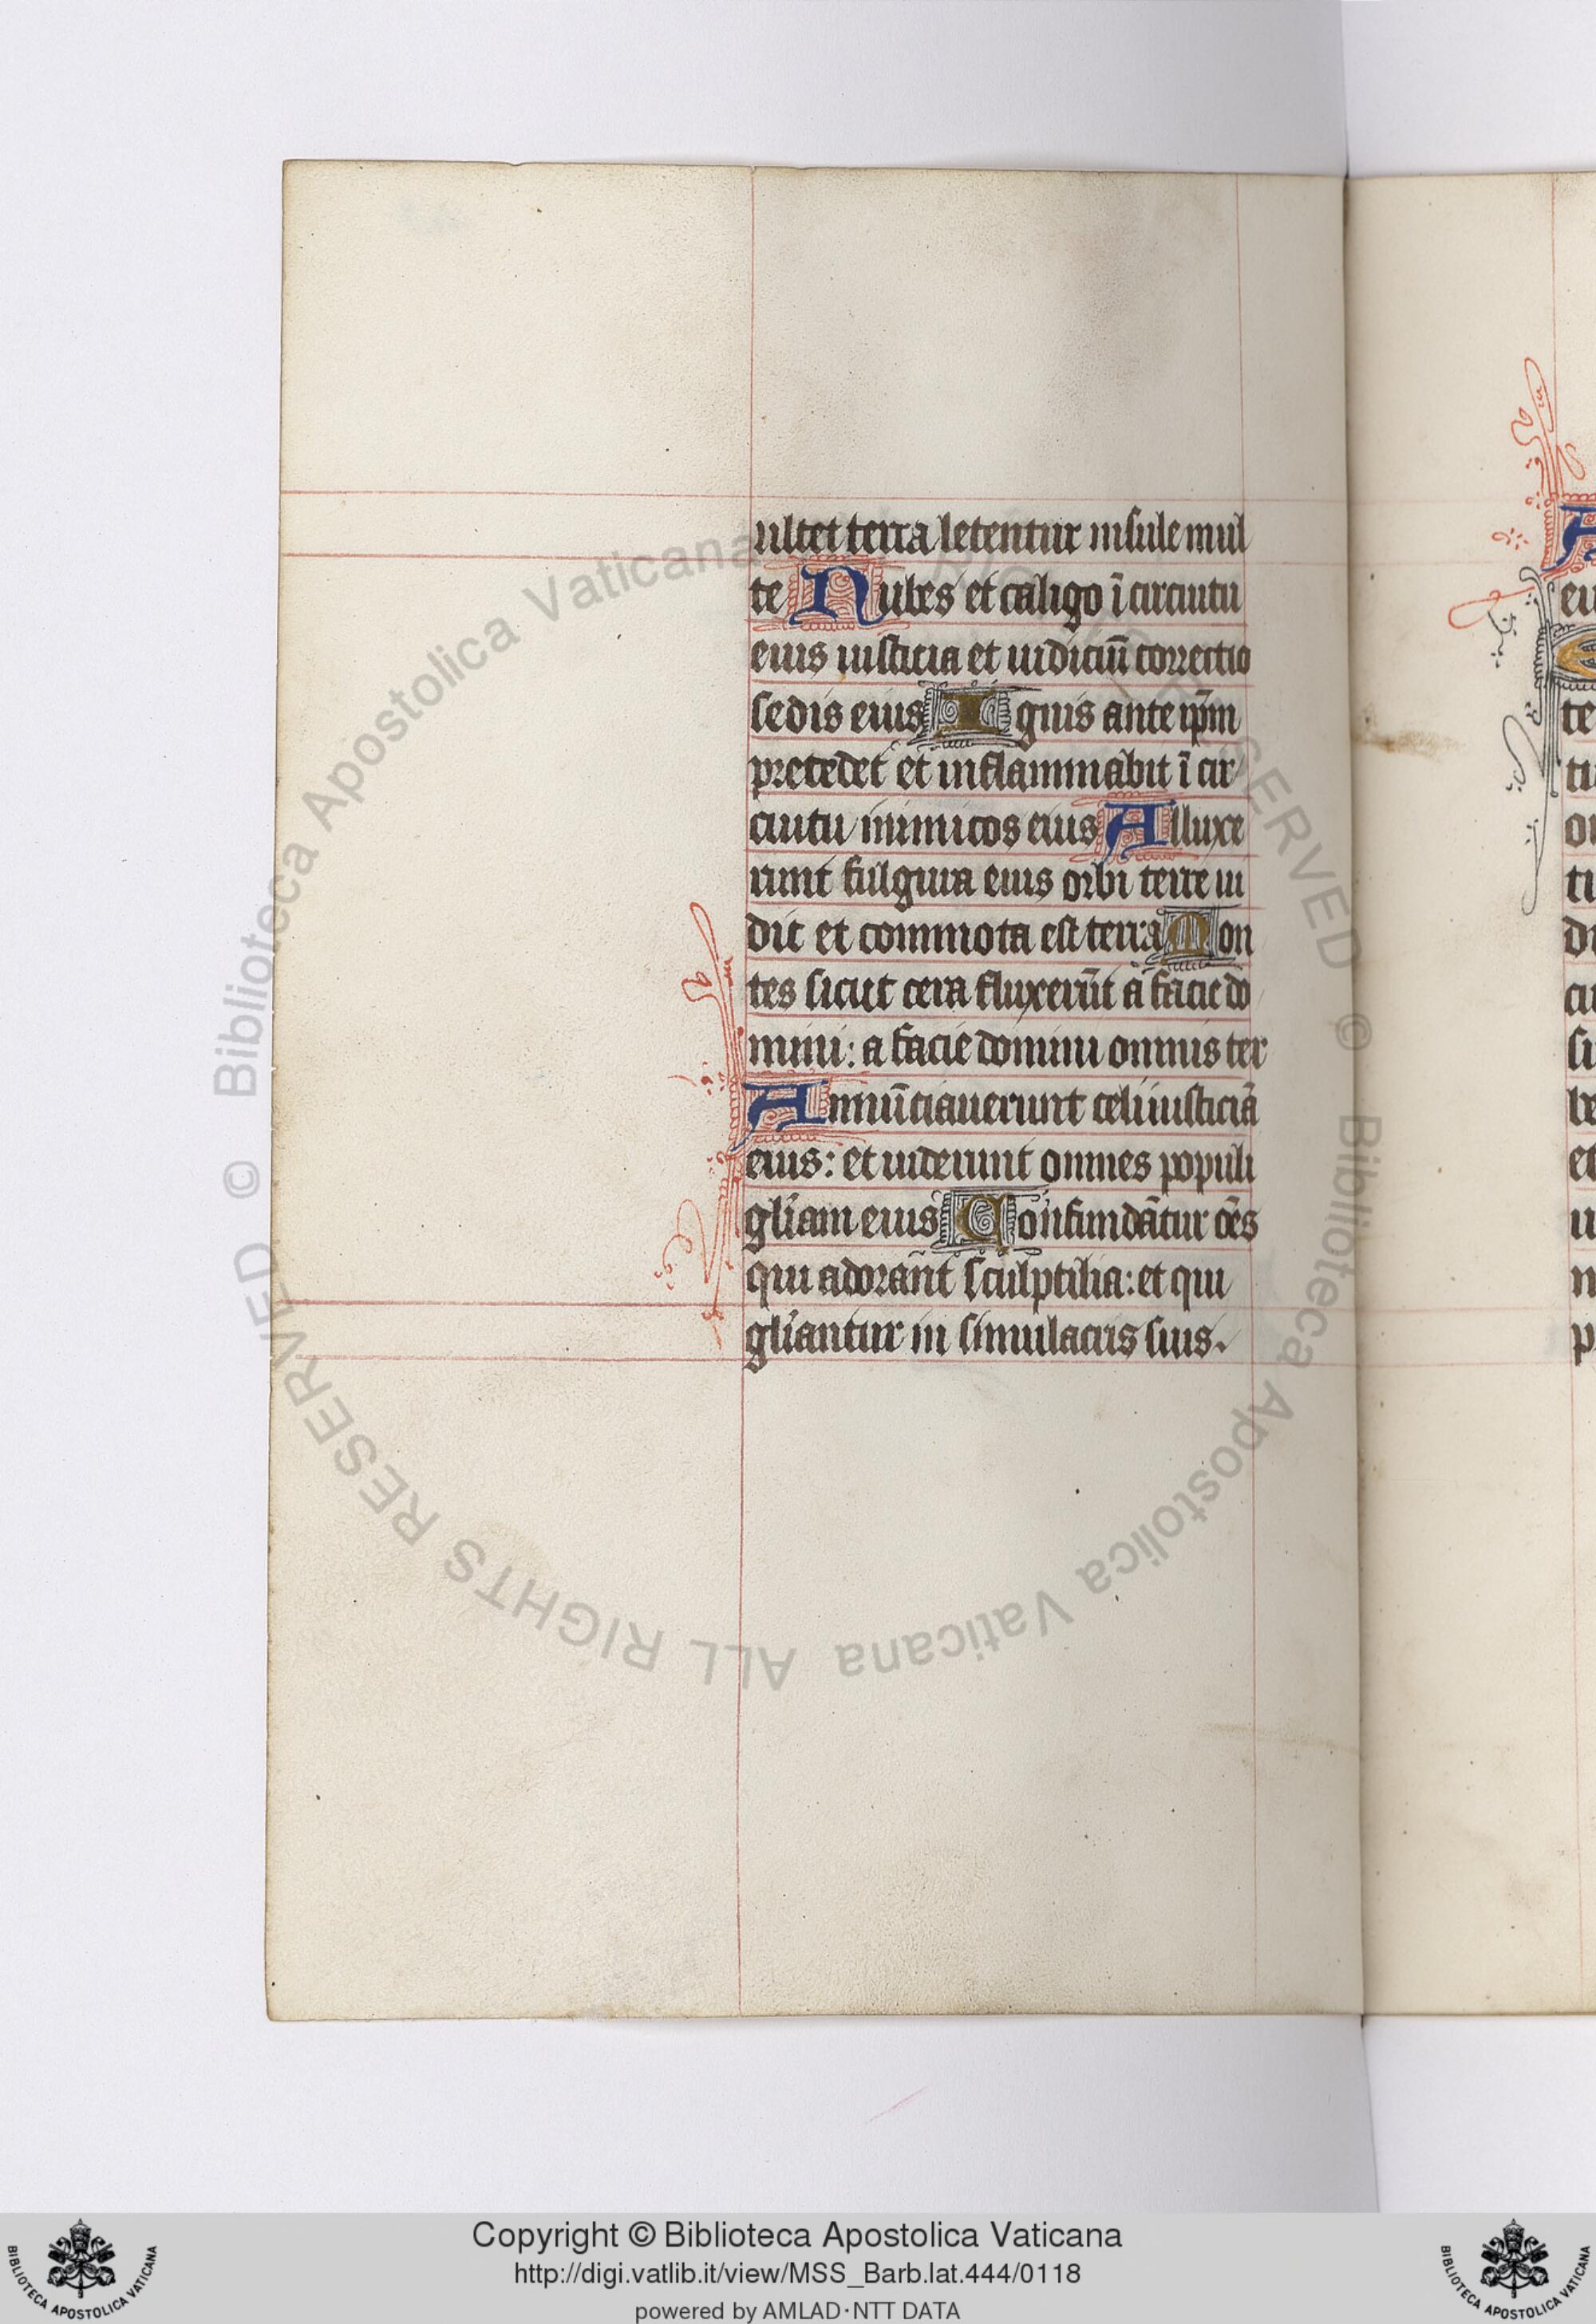 ultet terra letentur insule mul
te Nubes et caligo ī circuitu
eius iusticia et iudiciū correctio
sedis eius Ignis ante ip̄m
precedet et inflammabit ī cir
cuitu inimicos eius Alluxe
runt fulgura eius orbi terre ui
dit et commota est terra Mon
tes sicut cera fluxerūt a facie do
mini: a facie domini omnis ter
Annūciauerunt celi iusticiā
eius: et uiderunt omnes populi
gl̄iam eius Confundātur oēs
qui adorant sculptilia: et qui
gl̄iantur in simulacris suis.
A
eu
te
ti
or
ti
di
cu
si
be
et
u
n
p
© Biblioteca Apostolica Vaticana ALL RIGHTS RESERVED © Biblioteca Apostolica Vaticana ALL RIGHTS RESERVED
Copyright © Biblioteca Apostolica Vaticana
http://digi.vatlib.it/view/MSS_Barb.lat.444/0118
powered by AMLAD·NTT DATA
BIBLIOTECA APOSTOLICA VATICANA
BIBLIOTECA APOSTOLICA VATICANA